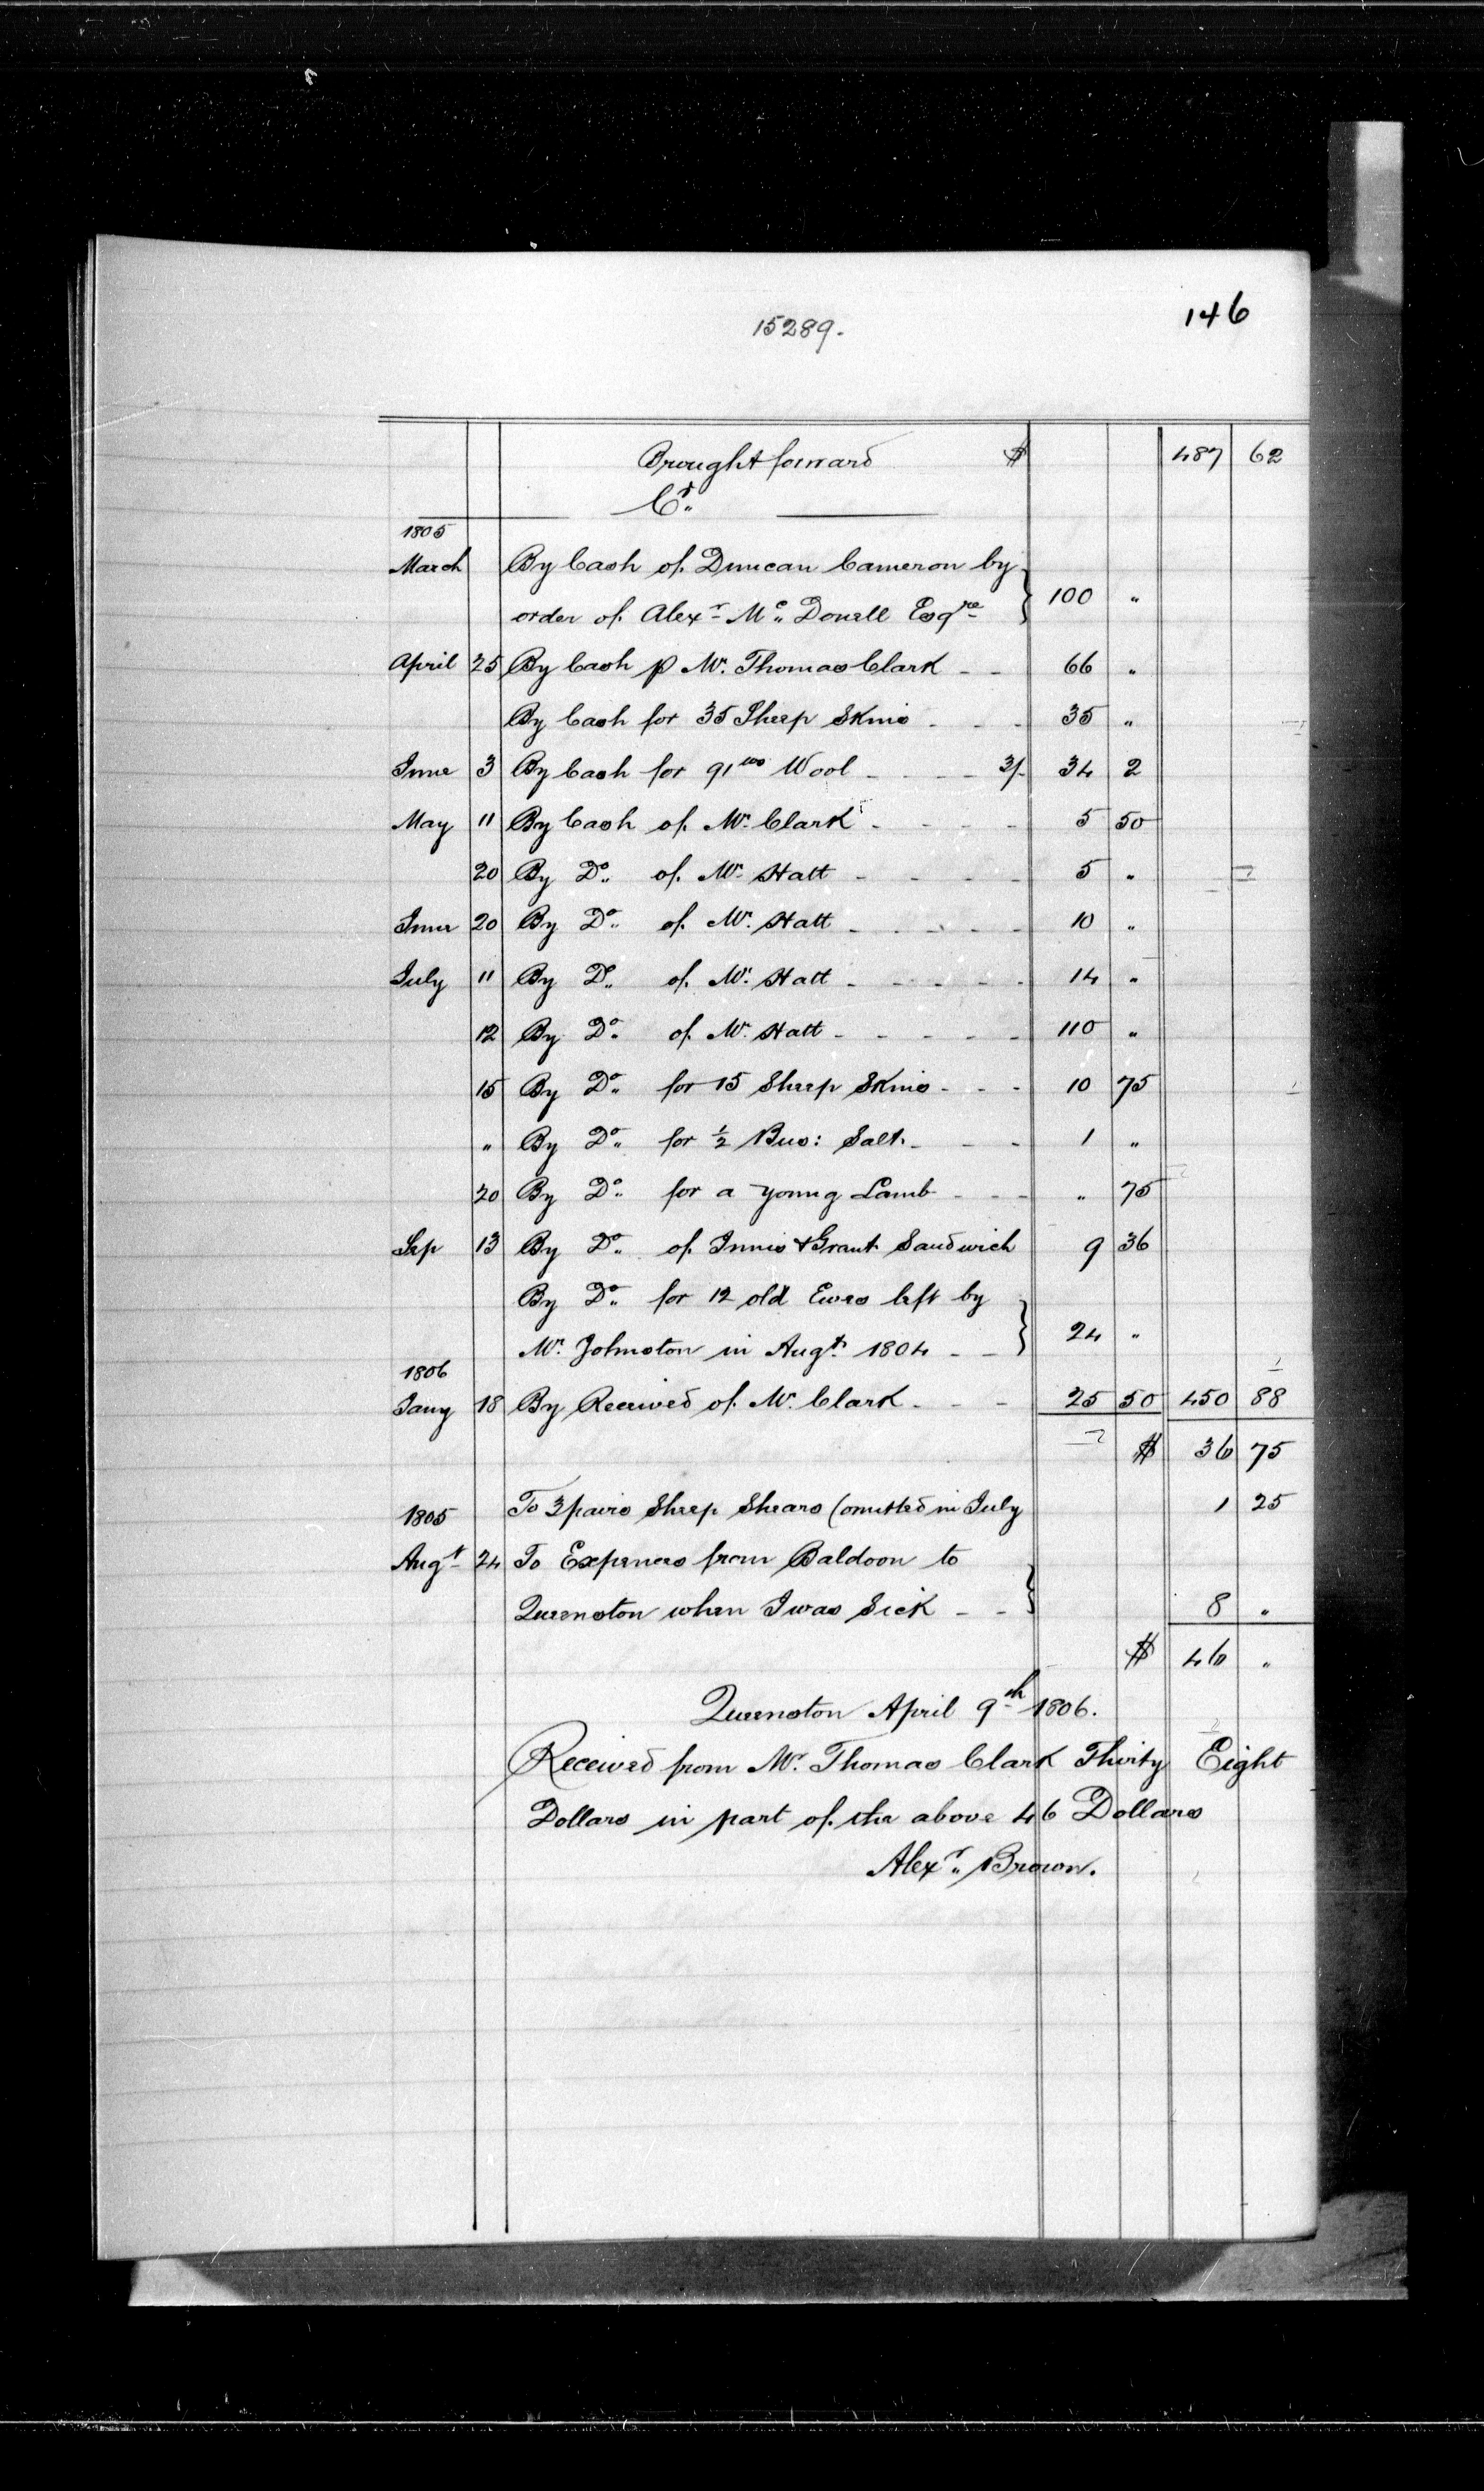 146
15289.
Brought forward $ 487 62
Cr.,
1805
March By Cash of Duncan Cameron by
order of Alexr Mc. Donell Esqre } 100 "
April 25 By Cash p Mr. Thomas Clark - - 66 "
By Cash for 35 Sheep Skins - - - 35 "
June 3 By Cash for 91 lbs Wool - - - - 3/- 34 2
May 11 By Cash of Mr. Clark - - - - 5 50
20 By Do.. of Mr. Hatt - - - - 5 "
June 20 By Do.. of Mr. Hatt - - - - - 10 "
July 11 By Do.. of Mr. Hatt - - - - - 14 "
12 By Do.. of Mr. Hatt - - - - - 110 "
15 By Do.. for 15 Sheep Skins - - - 10 75
" By Do.. for ½ Bus: Salt - - - 1 "
20 By Do.. for a young Lamb - - - " 75
Sep 13 By Do.. of Innis & Grant Sandwich 9 36
By Do.. for 12 old Ewes left by
Mr. Johnston in Augt. 1804 - - } 24 "
1806
Jany 18 By Received of Mr. Clark - - - 25 50 450 88
$ 36 75
To 3 pairs Sheep Shears (omitted in July 1 25
1805
Augt 24 To Expences from Baldoon to
Queenston when I was Sick - - } 8 "
$ 46 "
Queenston April 9th 1806.
Received from Mr. Thomas Clark Thirty Eight
Dollars in part of the above 46 Dollars
Alexr.. Brown.